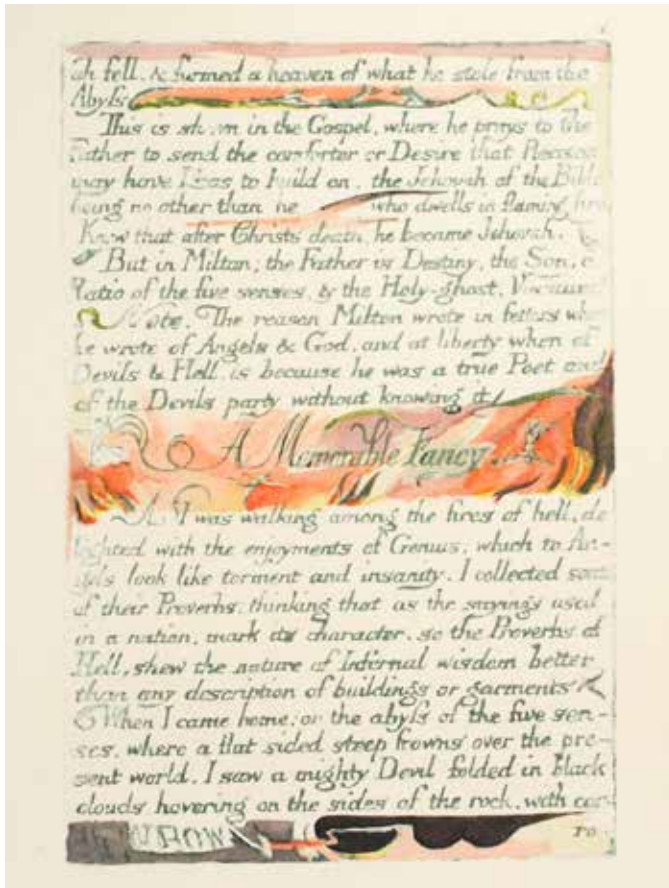 ah fell, & formed a heaven of what he stole from the
Abyss
This is shewn in the Gospel, where he prays to the
Father to send the comforter or Desire that Reason
may have Ideas to build on, the Jehovah of the Bible
being no other than he who dwells in flaming fire
Know that after Christs death, he became Jehovah.
But in Milton; the Father is Destiny, the Son, a
Ratio of the five senses, & the Holy-ghost, Vacuum!
Note. The reason Milton wrote in fetters when
he wrote of Angels & God, and at liberty when of
Devils & Hell, is because he was a true Poet and
of the Devils party without knowing it
A Memorable Fancy.
As I was walking among the fires of hell, de
lighted with the enjoyments of Genius; which to An-
gels look like torment and insanity. I collected some
of their Proverbs: thinking that as the sayings used
in a nation, mark its character, so the Proverbs of
Hell, shew the nature of Infernal wisdom better
than any description of buildings or garments
When I came home; on the abyss of the five sen-
ses, where a flat sided steep frowns over the pre-
sent world. I saw a mighty Devil folded in black
clouds hovering on the sides of the rock, with cor-
ro